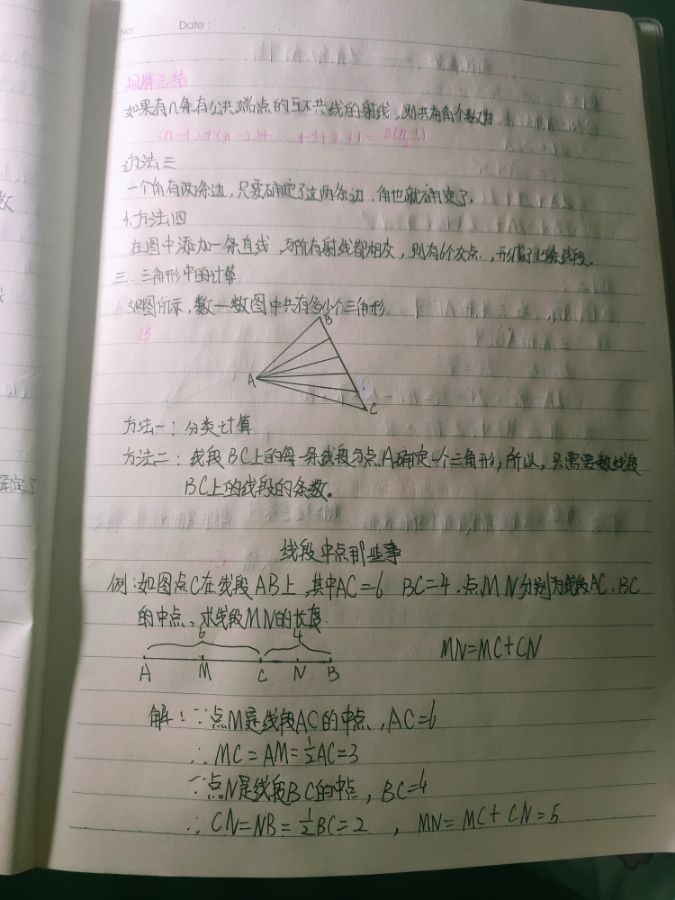 No:
Date:
规律总结
如果有n条有公共端点的互不共线的射线,则共有角个数为
(n-1)+(n-2)+ +3+2+1=n(n-1)/2
方法三
一个角有两条边,只要确定了这两条边.角也就确定了.
方法四
在图中添加一条直线,与所有射线都相交,则有6个交点,形成了15条线段.
三.三角形中的计算
如图所示,数一数图中共有多少个三角形.
15
B
A
C
方法一:分类计算
方法二:线段BC上的每一条线段与点A确定一个三角形,所以,只需要数线段
BC上的线段的条数。
线段中点那些事
例:如图点C在线段AB上,其中AC=6 BC=4.点M N分别为线段AC、BC
的中点、求线段MN的长度.
6 4
MN=MC+CN
A M C N B
解:∵点M是线段AC的中点,AC=6
∴MC=AM=1/2AC=3
∵点N是线段BC的中点,BC=4
∴CN=NB=1/2BC=2,MN=MC+CN=5